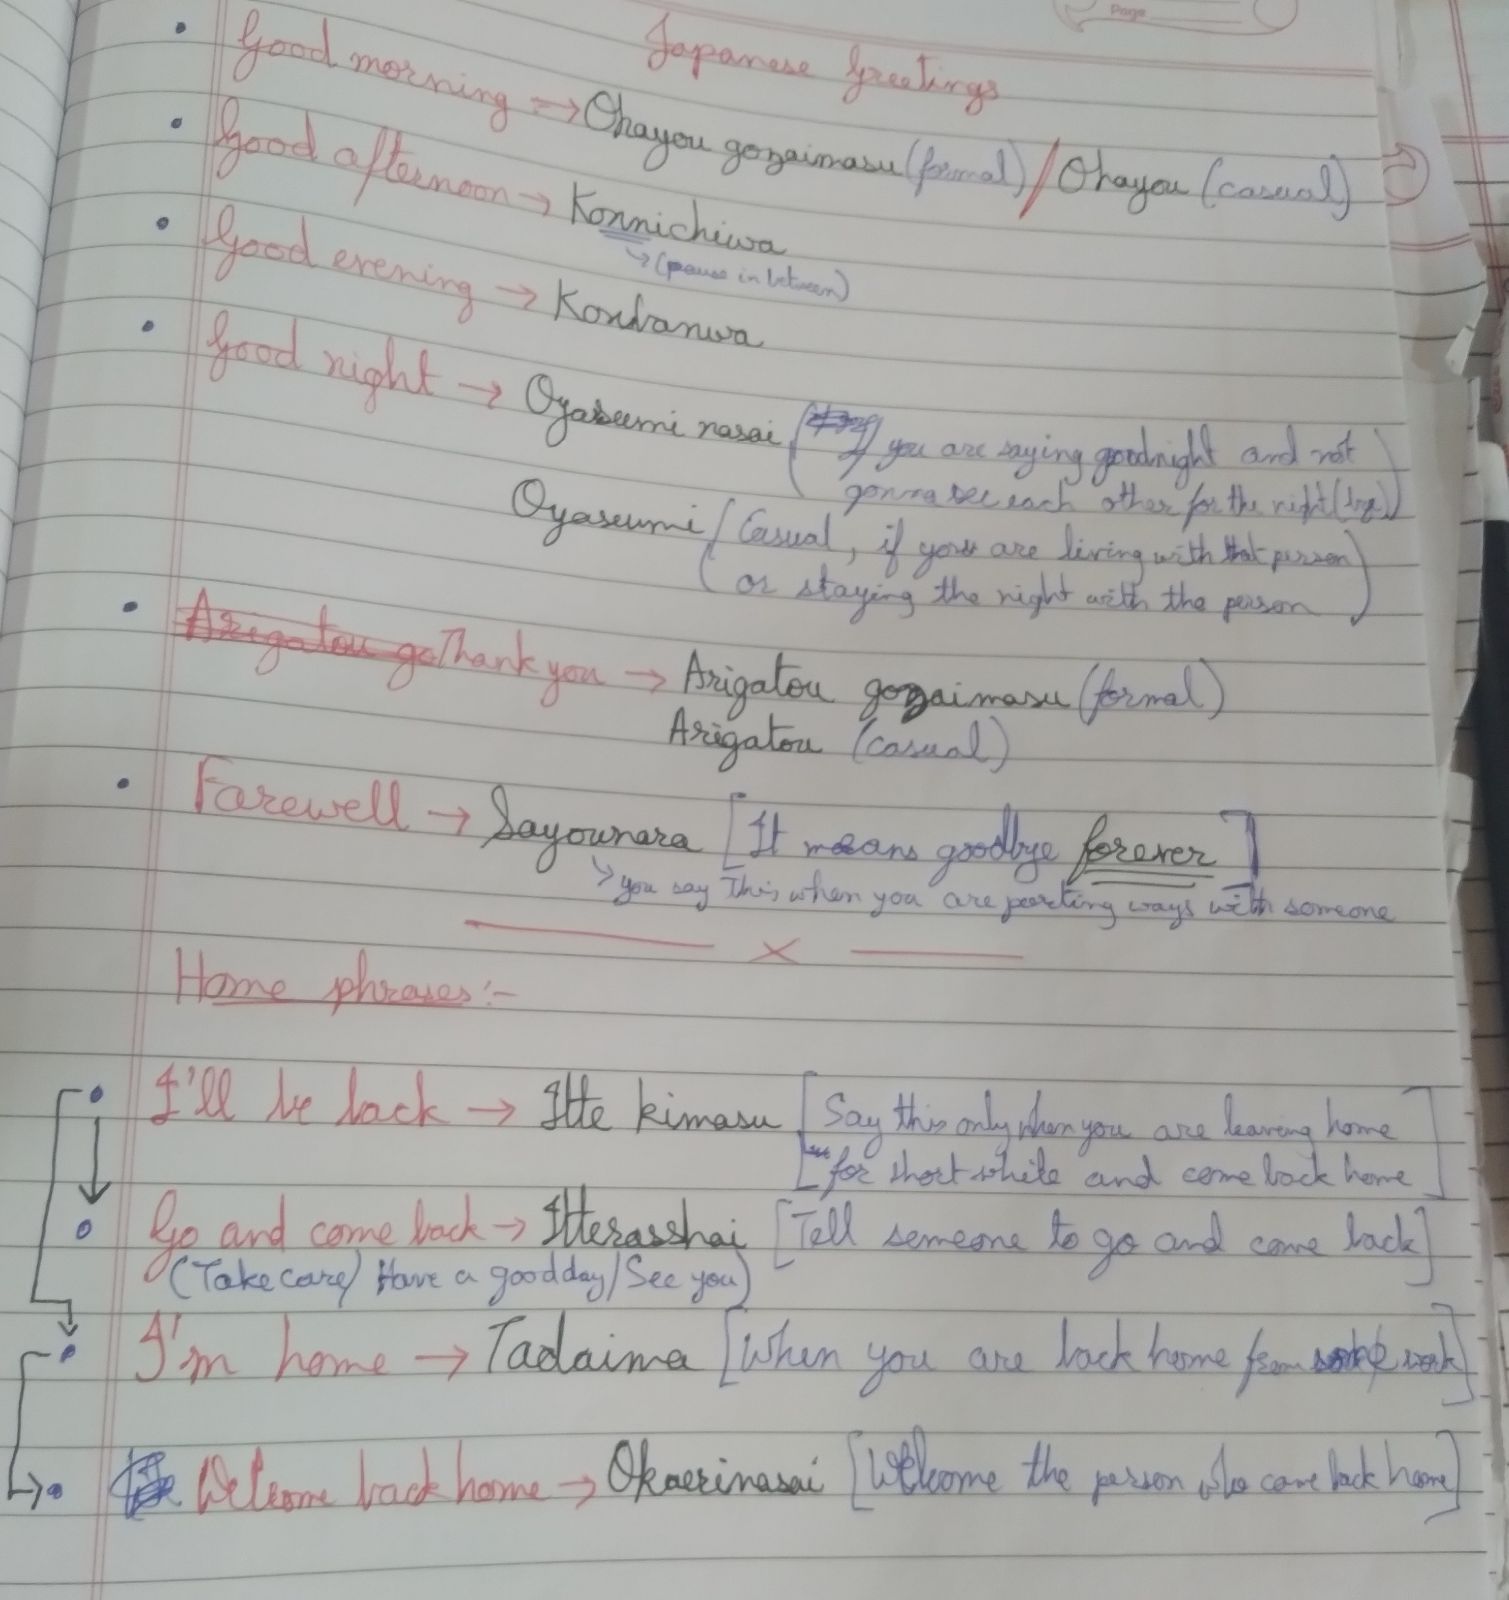 Page
Japanese Greetings
• Good morning => Ohayou gozaimasu (formal) / Ohayou (casual)
• Good afternoon → Konnichiwa
↳ (pause in between)
• Good evening → Konbanwa
• Good night → Oyasumi nasai (If you are saying goodnight and not
gonna see each other for the night
Oyasumi (Casual, if you are living with that person
or staying the night with the person)
• Arigatou go Thank you → Arigatou gozaimasu (formal)
Arigatou (casual)
• Farewell → Sayounara [It means goodbye forever]
↳ you say this when you are parting ways with someone
x
Home phrases:-
• I'll be back → Itte kimasu [Say this only when you are leaving home
for short while and come back home]
Go and come back → Itterasshai [Tell someone to go and come back]
(Take care/ Have a good day/See you)
• I'm home → Tadaima [When you are back home from work]
• Welcome back home → Okaerinasai [Welcome the person who came back home]